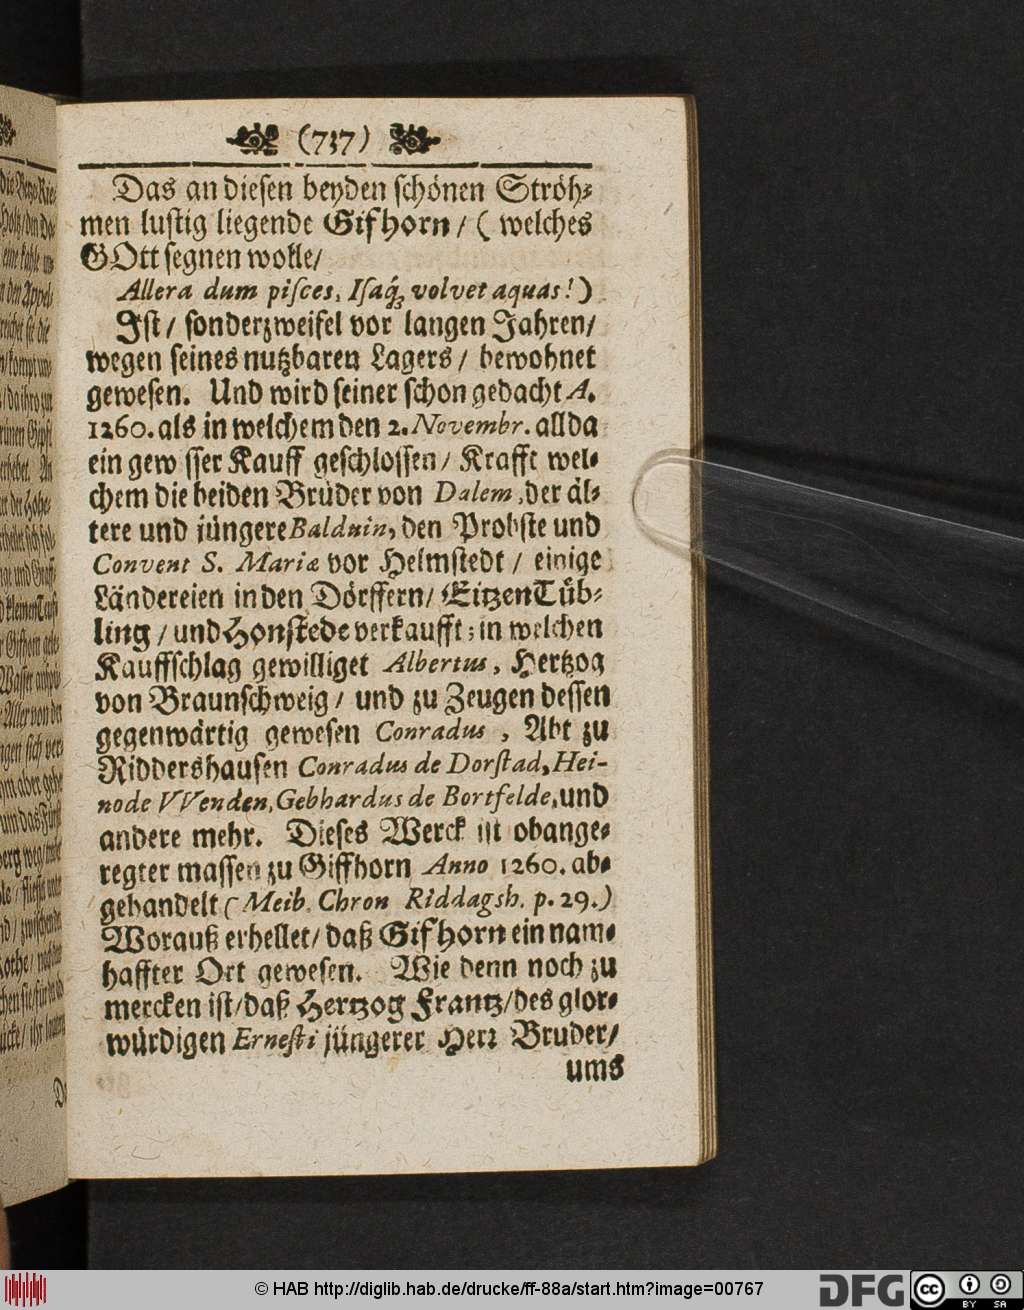 (737)
Das an diesen beyden schönen Ströh⸗
men lustig liegende Gifhorn/ ( welches
GOtt segnen wolle/
Allera dum piſces, Iſaq́; volvet aquas!)
Ist/ sonderzweifel vor langen Jahren/
wegen seines nutzbaren Lagers/ bewohnet
gewesen. Und wird seiner schon gedacht A.
1260. als in welchem den 2. Novembr. allda
ein gew sser Kauff geschlossen/ Krafft wel⸗
chem die beiden Brüder von Dalem, der äl⸗
tere und jüngere Balduin, den Probste und
Convent S. Mariæ vor Helmstedt / einige
Ländereien in den Dörffern/ Eitzen Tüb⸗
ling / und Honstede verkaufft; in welchen
Kauffschlag gewilliget Albertus, Hertzog
von Braunschweig/ und zu Zeugen dessen
gegenwärtig gewesen Conradus , Abt zu
Riddershausen Conradus de Dorſtad, Hei-
node VVenden, Gebhardus de Bortfelde, und
andere mehr. Dieses Werck ist obange⸗
regter massen zu Giffhorn Anno 1260. ab⸗
gehandelt ( Meib. Chron Riddagsh. p. 29.)
Worauß erhellet/ daß Gifhorn ein nam⸗
haffter Ort gewesen. Wie denn noch zu
mercken ist/ daß Hertzog Frantz/ des glor⸗
würdigen Erneſti jüngerer Herr Bruder/
ums
© HAB http://diglib.hab.de/drucke/ff-88a/start.htm?image=00767
DFG
cc
BY SA